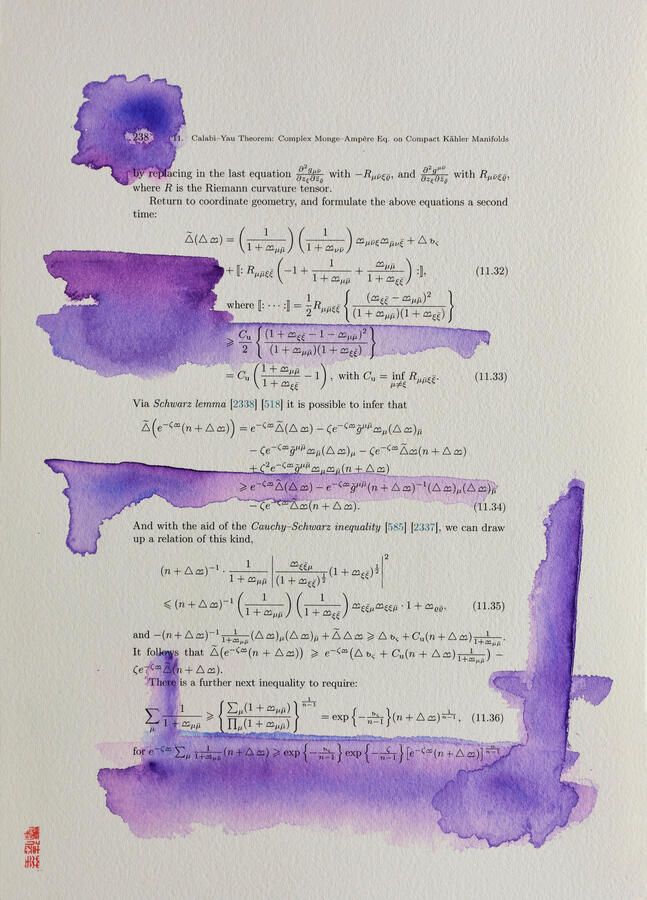 238 11. Calabi–Yau Theorem: Complex Monge–Ampère Eq. on Compact Kähler Manifolds
by replacing in the last equation \frac{∂²g_{μν̄}}{∂z_ξ∂z̄_ξ̄} with −R_{μν̄ξξ̄}, and \frac{∂²g^{μν̄}}{∂z_ξ∂z̄_ξ̄} with R_{μν̄ξξ̄},
where R is the Riemann curvature tensor.
Return to coordinate geometry, and formulate the above equations a second
time:
Δ̃(△ᘔ) = (\frac{1}{1 + ᘔ_{μμ̄}}) (\frac{1}{1 + ᘔ_{νν̄}}) ᘔ_{μν̄ξ}ᘔ_{μ̄νξ̄} + △ 𝔥_ς
+ ⟦: R_{μμ̄ξξ̄} (−1 + \frac{1}{1 + ᘔ_{μμ̄}} + \frac{ᘔ_{μμ̄}}{1 + ᘔ_{ξξ̄}}) :⟧, (11.32)
where ⟦: · · · :⟧ = \frac{1}{2}R_{μμ̄ξξ̄} {\frac{(ᘔ_{ξξ̄} − ᘔ_{μμ̄})²}{(1 + ᘔ_{μμ̄})(1 + ᘔ_{ξξ̄})}}
⩾ \frac{C_u}{2} {\frac{(1 + ᘔ_{ξξ̄} − 1 − ᘔ_{μμ̄})²}{(1 + ᘔ_{μμ̄})(1 + ᘔ_{ξξ̄})}}
= C_u (\frac{1 + ᘔ_{μμ̄}}{1 + ᘔ_{ξξ̄}} − 1), with C_u = inf_{μ≠ξ} R_{μμ̄ξξ̄}. (11.33)
Via Schwarz lemma [2338] [518] it is possible to infer that
Δ̃(e^{−ζᘔ}(n + △ᘔ)) = e^{−ζᘔ}Δ̃(△ᘔ) − ζe^{−ζᘔ}g̃^{μμ̄}ᘔ_μ(△ᘔ)_μ̄
− ζe^{−ζᘔ}g̃^{μμ̄}ᘔ_μ̄(△ᘔ)_μ − ζe^{−ζᘔ}Δ̃ᘔ(n + △ᘔ)
+ ζ²e^{−ζᘔ}g̃^{μμ̄}ᘔ_μᘔ_μ̄(n + △ᘔ)
⩾ e^{−ζᘔ}Δ̃(△ᘔ) − e^{−ζᘔ}g̃^{μμ̄}(n + △ᘔ)^{−1}(△ᘔ)_μ(△ᘔ)_μ̄
− ζe^{−ζᘔ}Δ̃ᘔ(n + △ᘔ). (11.34)
And with the aid of the Cauchy–Schwarz inequality [585] [2337], we can draw
up a relation of this kind,
(n + △ᘔ)^{−1} · \frac{1}{1 + ᘔ_{μμ̄}} |\frac{ᘔ_{ξξ̄μ}}{(1 + ᘔ_{ξξ̄})^{\frac{1}{2}}}(1 + ᘔ_{ξξ̄})^{\frac{1}{2}}|²
⩽ (n + △ᘔ)^{−1} (\frac{1}{1 + ᘔ_{μμ̄}}) (\frac{1}{1 + ᘔ_{ξξ̄}}) ᘔ_{ξξ̄μ}ᘔ_{ξ̄ξμ̄} · 1 + ᘔ_{ϱϱ̄}, (11.35)
and −(n + △ᘔ)^{−1}\frac{1}{1+ᘔ_{μμ̄}}(△ᘔ)_μ(△ᘔ)_μ̄ + Δ̃△ᘔ ⩾ △ 𝔥_ς + C_u(n + △ᘔ)\frac{1}{1+ᘔ_{μμ̄}}.
It follows that Δ̃(e^{−ζᘔ}(n + △ᘔ)) ⩾ e^{−ζᘔ}(△ 𝔥_ς + C_u(n + △ᘔ)\frac{1}{1+ᘔ_{μμ̄}}) −
ζe^{−ζᘔ}Δ̃(n + △ᘔ).
There is a further next inequality to require:
∑_μ \frac{1}{1 + ᘔ_{μμ̄}} ⩾ {\frac{∑_μ(1 + ᘔ_{μμ̄})}{∏_μ(1 + ᘔ_{μμ̄})}}^{\frac{1}{n−1}} = exp{−\frac{𝔥_ς}{n−1}}(n + △ᘔ)^{\frac{1}{n−1}}, (11.36)
for e^{−ζᘔ} ∑_μ \frac{1}{1+ᘔ_{μμ̄}}(n + △ᘔ) ⩾ exp{−\frac{𝔥_ς}{n−1}} exp{−\frac{ζ}{n−1}} [e^{−ζᘔ}(n + △ᘔ)]^{\frac{n}{n−1}}